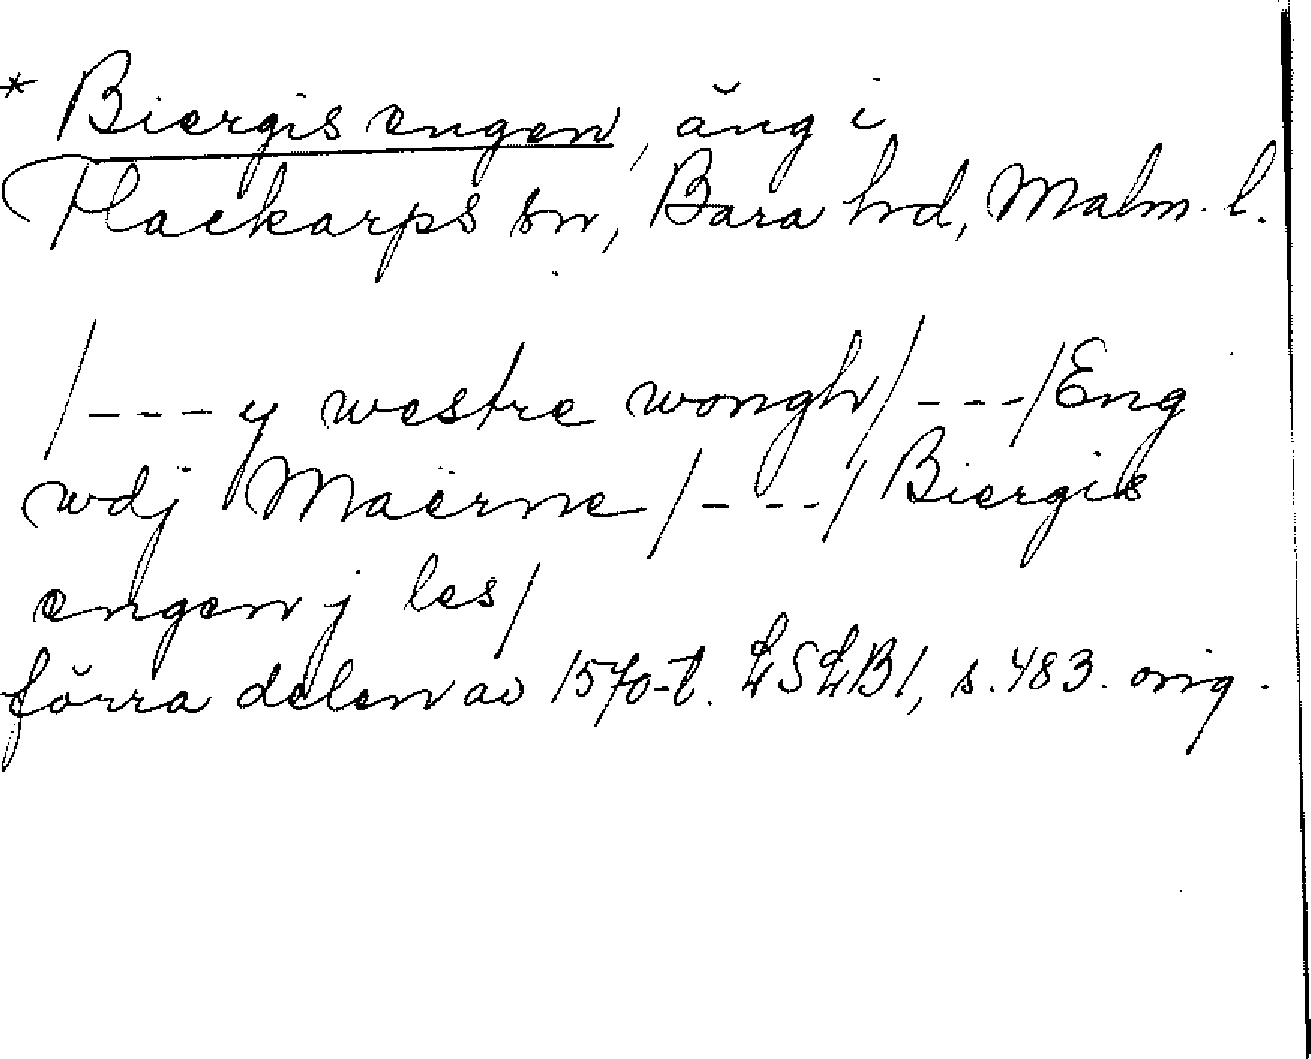 * Biergis engen, äng i
Flackarps sn, Bara hd, Malm. l.
/---y westre wongh/---/Eng
wdj Maerne/---/Biergis
engen j les/
förra delen av 1570-t. LSLB1, s.483. orig.